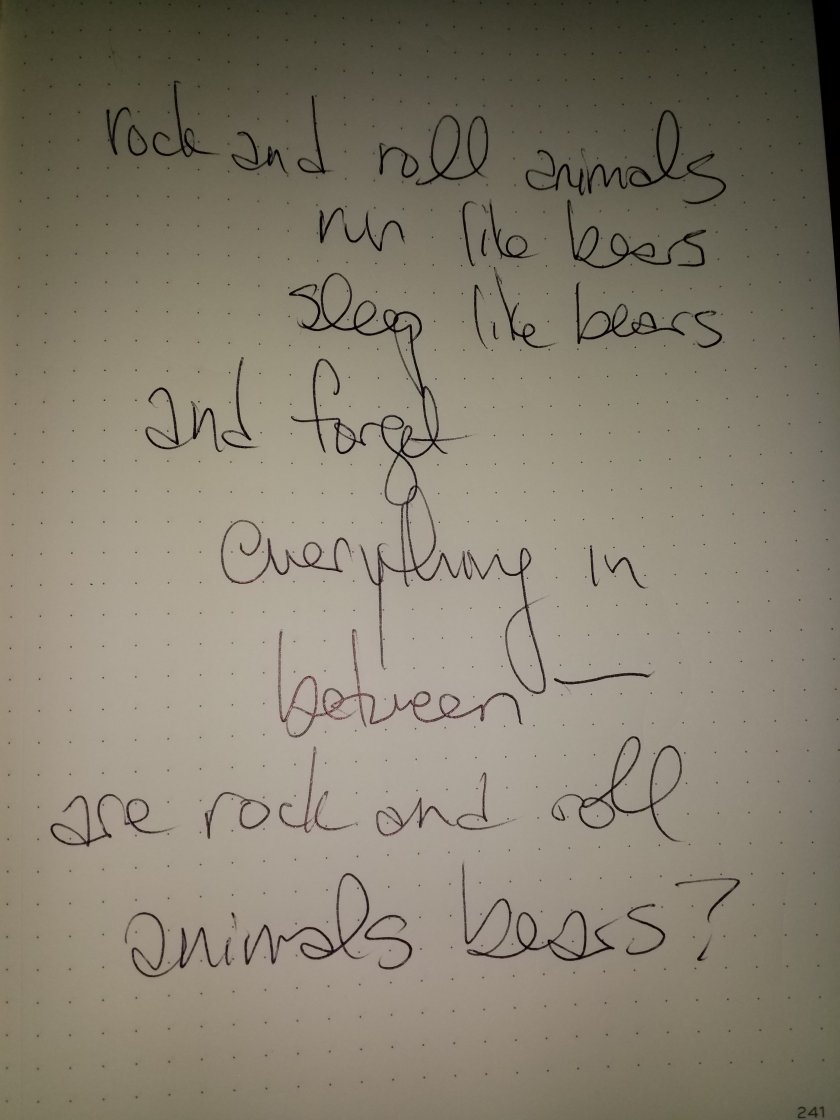 rock and roll animals
run like bears
sleep like bears
and forget
everything in
between —
are rock and roll
animals bears?
241